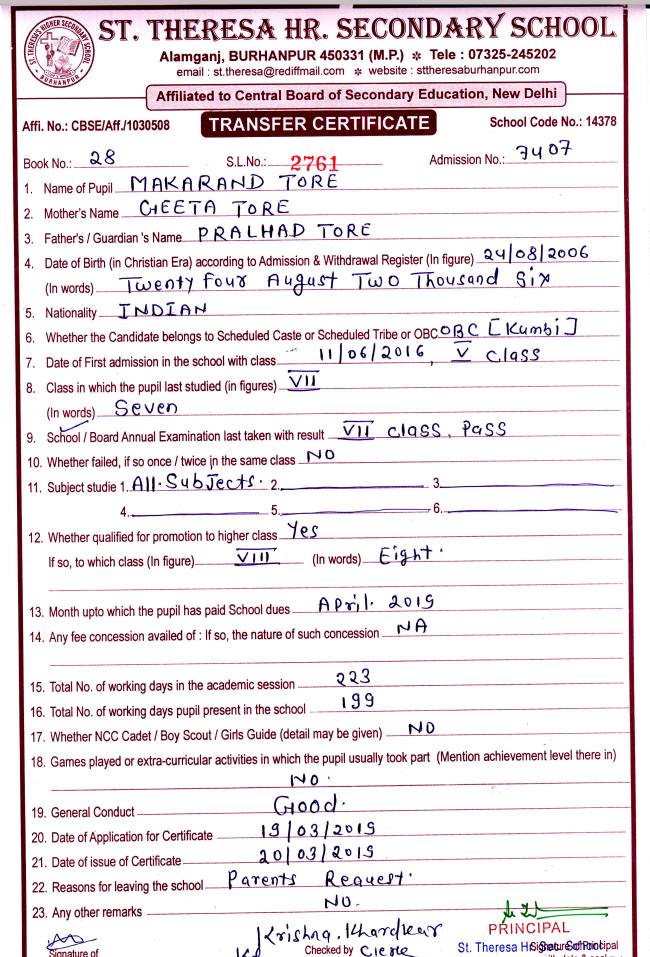 ST. THERESA HR. SECONDARY SCHOOL
ST. THERESA'S HIGHER SECONDARY SCHOOL
BURHANPUR
Alamganj, BURHANPUR 450331 (M.P.) * Tele : 07325-245202
email : st.theresa@rediffmail.com * website : sttheresaburhanpur.com
Affiliated to Central Board of Secondary Education, New Delhi
Affi. No.: CBSE/Aff./1030508 TRANSFER CERTIFICATE School Code No.: 14378
Book No.: 28 S.L.No.: 2761 Admission No.: 7407
1. Name of Pupil MAKARAND TORE
2. Mother's Name GEETA TORE
3. Father's / Guardian 's Name PRALHAD TORE
4. Date of Birth (in Christian Era) according to Admission & Withdrawal Register (In figure) 24/08/2006
(In words) Twenty Four August Two Thousand Six
5. Nationality INDIAN
6. Whether the Candidate belongs to Scheduled Caste or Scheduled Tribe or OBC OBC [Kumbi]
7. Date of First admission in the school with class 11/06/2016, V Class
8. Class in which the pupil last studied (in figures) VII
(In words) Seven
9. School / Board Annual Examination last taken with result VII class, Pass
10. Whether failed, if so once / twice in the same class NO
11. Subject studie 1. All.Subjects. 2. 3.
4. 5. 6.
12. Whether qualified for promotion to higher class Yes
If so, to which class (In figure) VIII (In words) Eight.
13. Month upto which the pupil has paid School dues April. 2019
14. Any fee concession availed of : If so, the nature of such concession NA
15. Total No. of working days in the academic session 223
16. Total No. of working days pupil present in the school 199
17. Whether NCC Cadet / Boy Scout / Girls Guide (detail may be given) NO
18. Games played or extra-curricular activities in which the pupil usually took part (Mention achievement level there in)
NO.
19. General Conduct Good.
20. Date of Application for Certificate 19/03/2019
21. Date of issue of Certificate 20/03/2019
22. Reasons for leaving the school Parents Request.
23. Any other remarks NO.
Krishna. Khardkar
PRINCIPAL
Signature of Checked by Clerk St. Theresa Hr. Signature of Principal